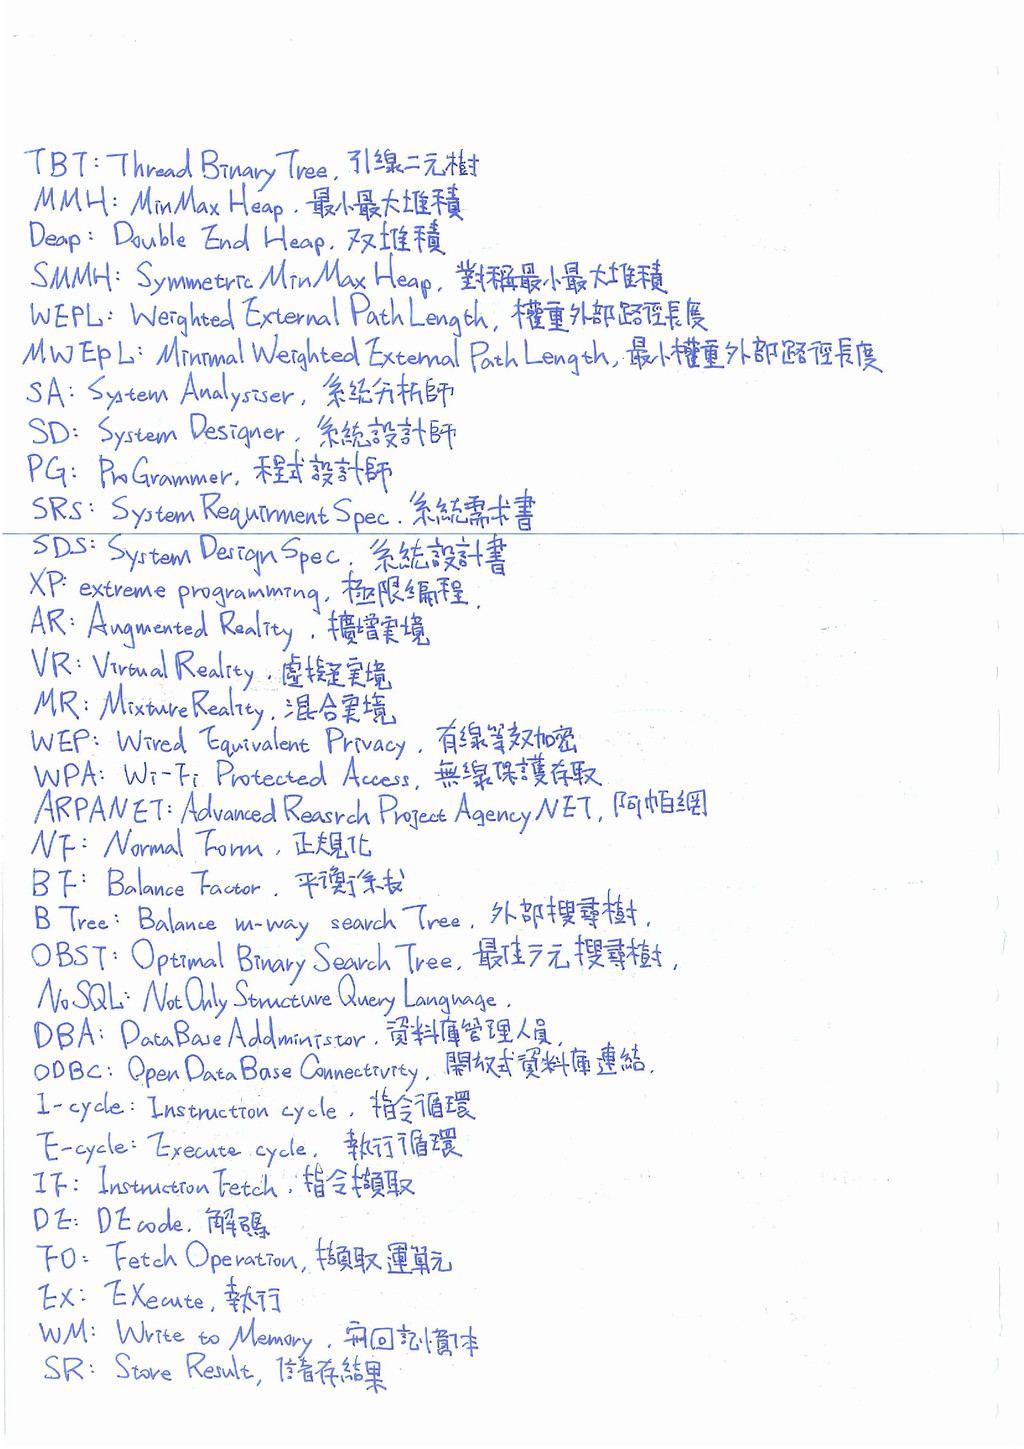 TBT: Thread Binary Tree, 引線二元樹
MMH: MinMax Heap, 最小最大堆積
Deap: Double End Heap, 双堆積
SMMH: Symmetric MinMax Heap, 對稱最小最大堆積
WEPL: Weighted External Path Length, 權重外部路徑長度
MWEPL: Minimal Weighted External Path Length, 最小權重外部路徑長度
SA: System Analysiser, 系統分析師
SD: System Designer, 系統設計師
PG: ProGrammer, 程式設計師
SRS: System Requirment Spec. 系統需求書
SDS: System Design Spec, 系統設計書
XP: extreme programming, 極限編程.
AR: Augmented Reality, 擴增実境
VR: Virtual Reality, 虛擬実境
MR: Mixture Reality, 混合実境
WEP: Wired Equivalent Privacy, 有線等效加密
WPA: Wi-Fi Protected Access, 無線保護存取
ARPANET: Advanced Reasrch Project Agency NET, 阿帕網
NF: Normal Form, 正規化
BF: Balance Factor, 平衡係数
B Tree: Balance m-way search Tree, 外部搜尋樹.
OBST: Optimal Binary Search Tree, 最佳二元搜尋樹.
NoSQL: Not Only Structure Query Language.
DBA: DataBase Addministor, 資料庫管理人員.
ODBC: Open DataBase Connectivity, 開放式資料庫連結.
I-cycle: Instruction cycle, 指令循環
E-cycle: Execute cycle, 執行循環
IF: Instruction Fetch, 指令擷取
DE: DEcode, 解碼
FO: Fetch Operation, 擷取運算元
EX: EXecute, 執行
WM: Write to Memory, 寫回記憶体
SR: Store Result, 儲存結果